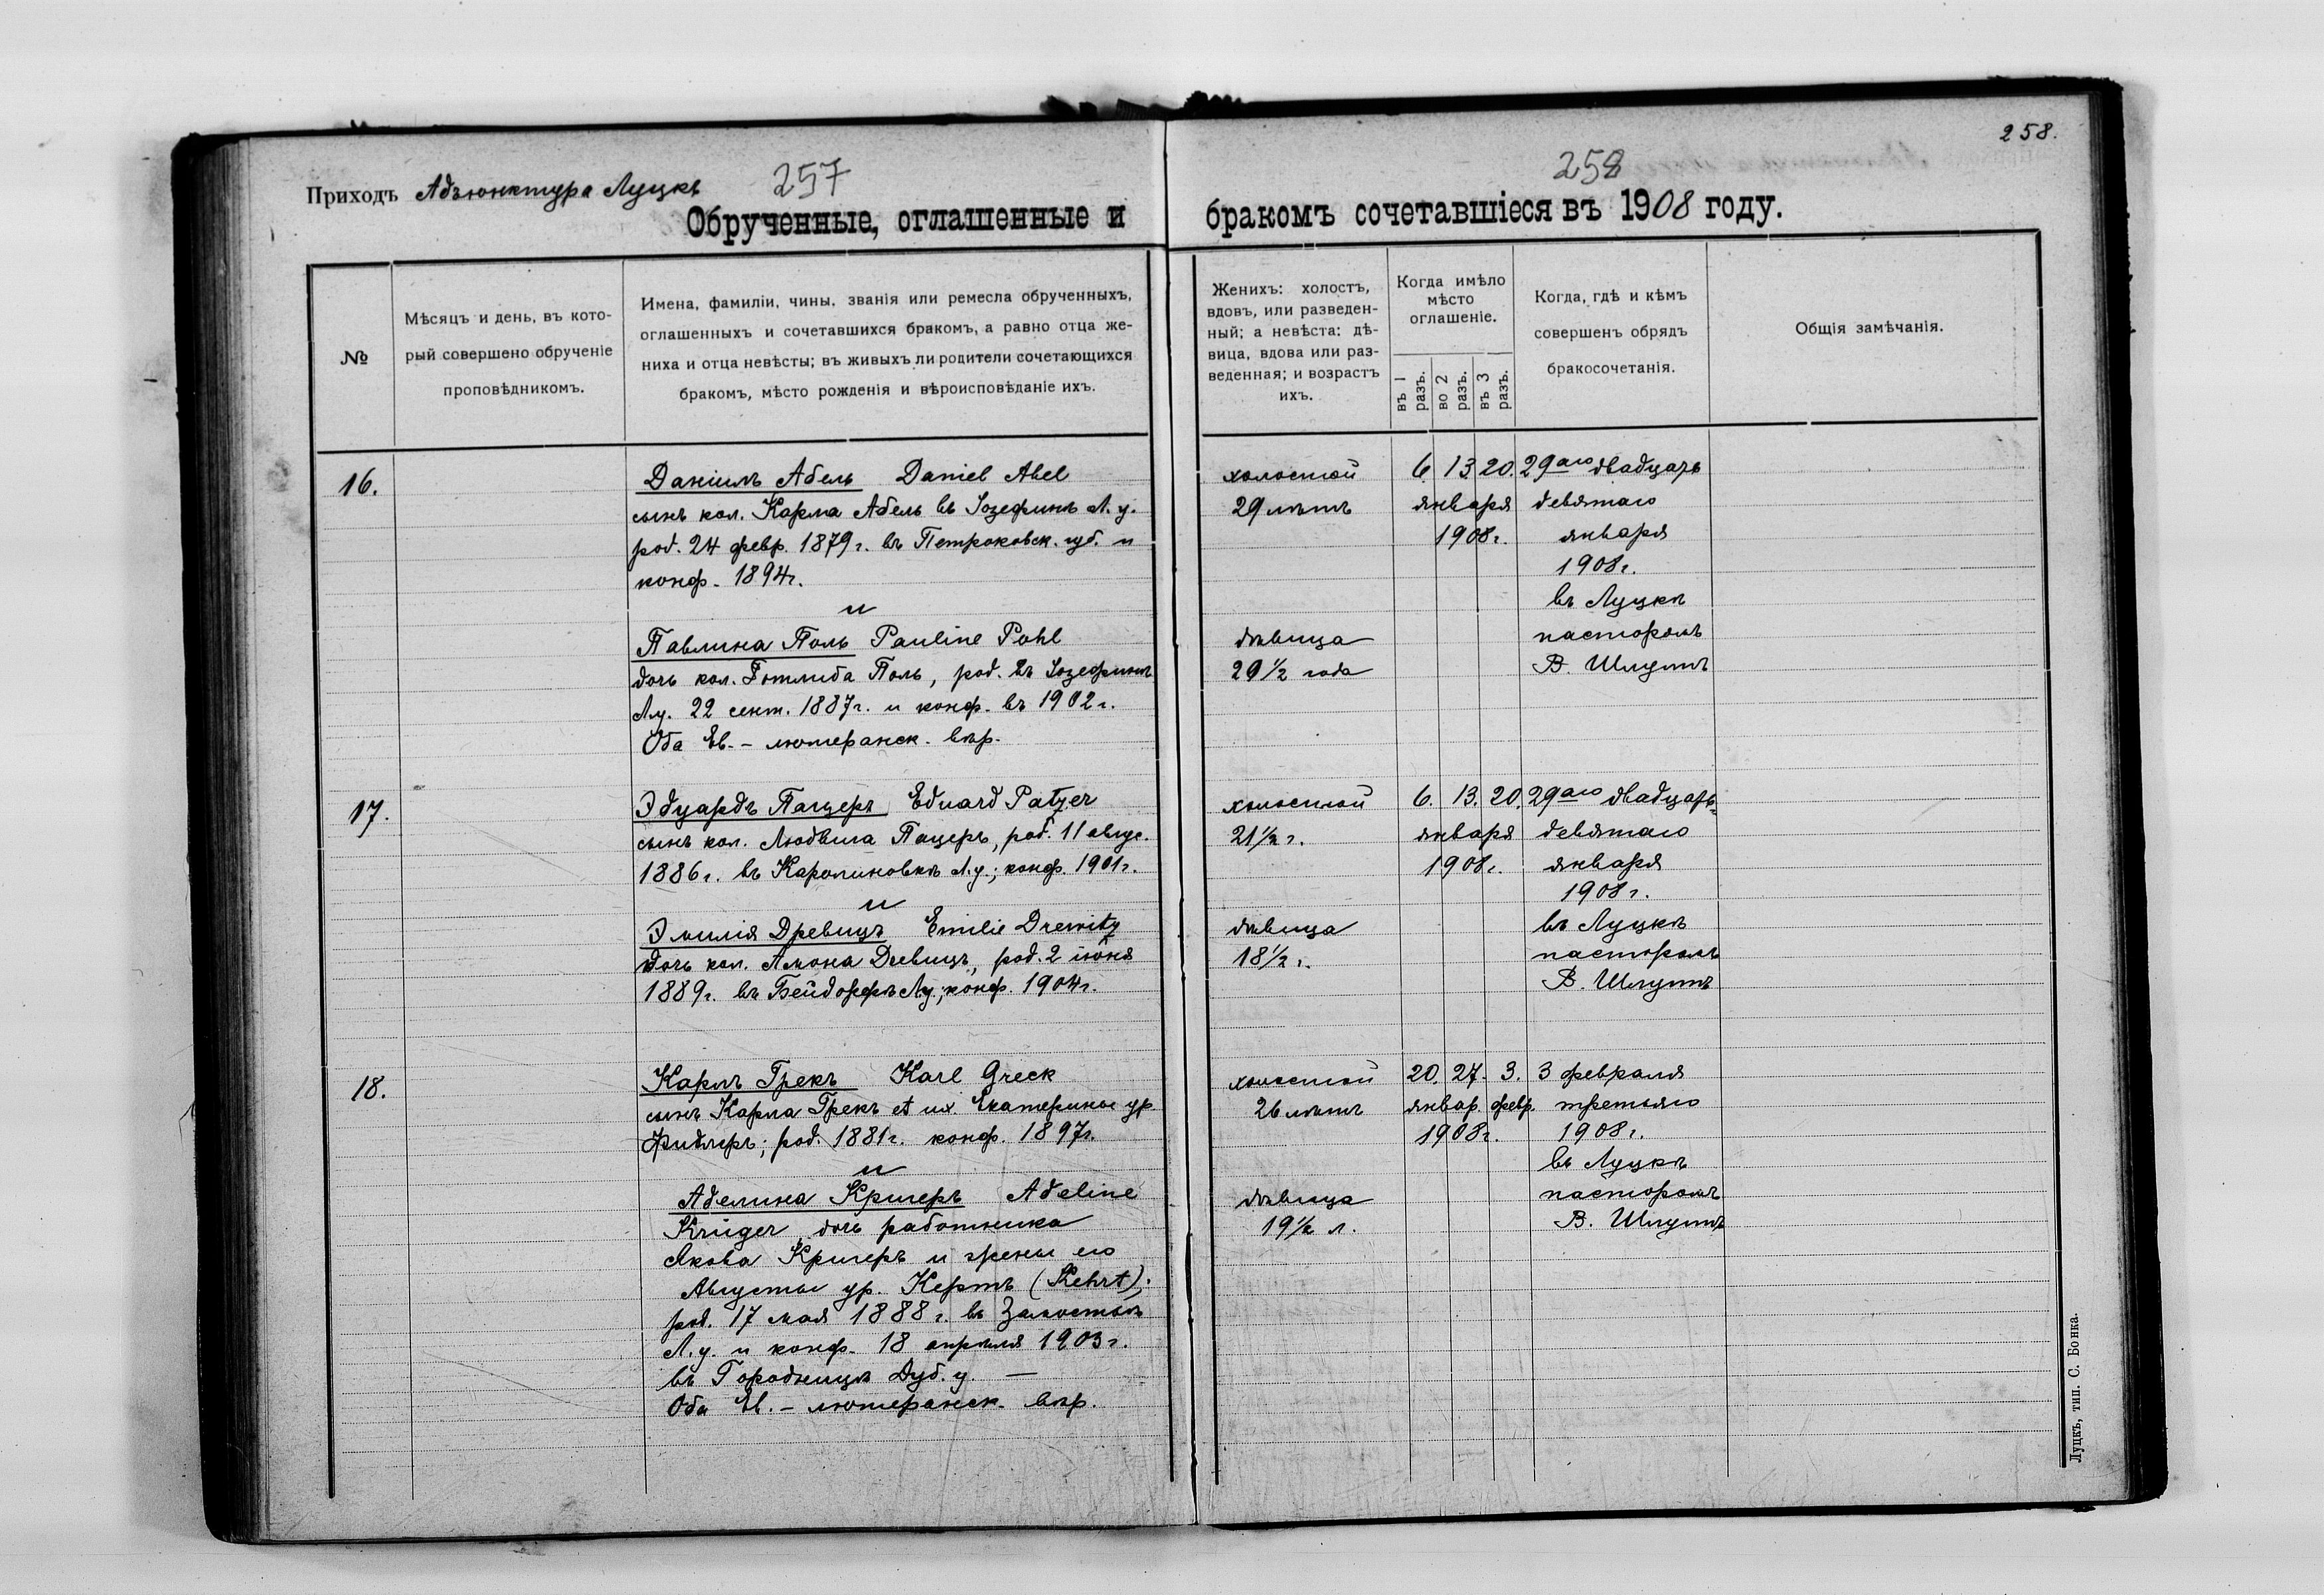 258.
257
258
Приходъ Адъюнктура Луцкъ
Обрученные, оглашенные и бракомъ сочетавшіеся въ 1908 году.
№
Мѣсяцъ и день, въ кото-
рый совершено обрученіе
проповѣдникомъ.
Имена, фамиліи, чины, званія или ремесла обрученныхъ,
оглашенныхъ и сочетавшихся бракомъ, а равно отца же-
ниха и отца невѣсты; въ живыхъ ли родители сочетающихся
бракомъ, мѣсто рожденія и вѣроисповѣданіе ихъ.
Женихъ: холостъ,
вдовъ, или разведен-
ный; а невѣста: дѣ-
вица, вдова или раз-
веденная; и возрастъ
ихъ.
Когда имѣло
мѣсто
оглашеніе.
въ 1 разъ.
во 2 разъ.
въ 3 разъ.
Когда, гдѣ и кѣмъ
совершенъ обрядъ
бракосочетанія.
Общія замѣчанія.
16.
Даніилъ Абель Daniel Abel
сынъ кол. Карла Абель въ Іозефинѣ Л. у.
род. 24 февр. 1879 г. въ Петроковск. губ. и
конф. 1894 г.
и
Павлина Поль Pauline Pohl
дочь кол. Готлиба Поль, род. въ Іозефинѣ
Л.у. 22 сент. 1887 г. и конф. въ 1902 г.
Оба Ев. - лютеранск. вѣр.
холостой
29 лѣтъ
дѣвица
20 1/2 года
6. 13. 20.
января
1908 г.
29аго двадцать
девятаго
января
1908 г.
въ Луцкѣ
пасторомъ
В. Шлуппъ
17.
Эдуардъ Пацеръ Eduard Patzer
сынъ кол. Людвига Пацеръ, род. 11 авгус.
1886 г. въ Каролиновкѣ Л.у.; конф. 1901 г.
и
Эмилія Древицъ Emilie Drewitz
дочь кол. Древицъ, род. 2 іюня
1889 г. въ Л.у.; конф. 1904 г.
холостой
21 1/2 г.
дѣвица
18 1/2 г.
6. 13. 20.
января
1908 г.
29аго двадцать
девятаго
января
1908 г.
въ Луцкѣ
пасторомъ
В. Шлуппъ
18.
Карлъ Грекъ Karl Greck
сынъ Карла Грекъ et их Екатерины ур.
Фидлеръ; род. 1881 г. конф. 1897 г.
и
Аделина Кригеръ Adeline
Krüger, дочь работника
Якова Кригеръ и жены его
Августы ур. Кертъ (Kehrt);
род. 17 мая 1888 г. въ
Л.у. и конф. 18 апрѣля 1903 г.
въ Городницѣ Дуб. у. —
Оба Ев. - лютеранск. вѣр.
холостой
26 лѣтъ
дѣвица
19 1/2 л.
20. 27. 3.
январ. февр.
1908 г.
3 февраля
третьяго
1908 г.
въ Луцкѣ
пасторомъ
В. Шлуппъ
Луцкъ, тип. С. Бонка.